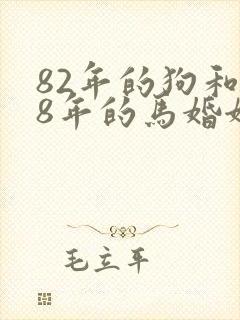 82年的狗和
8年的馬婚
毛立平